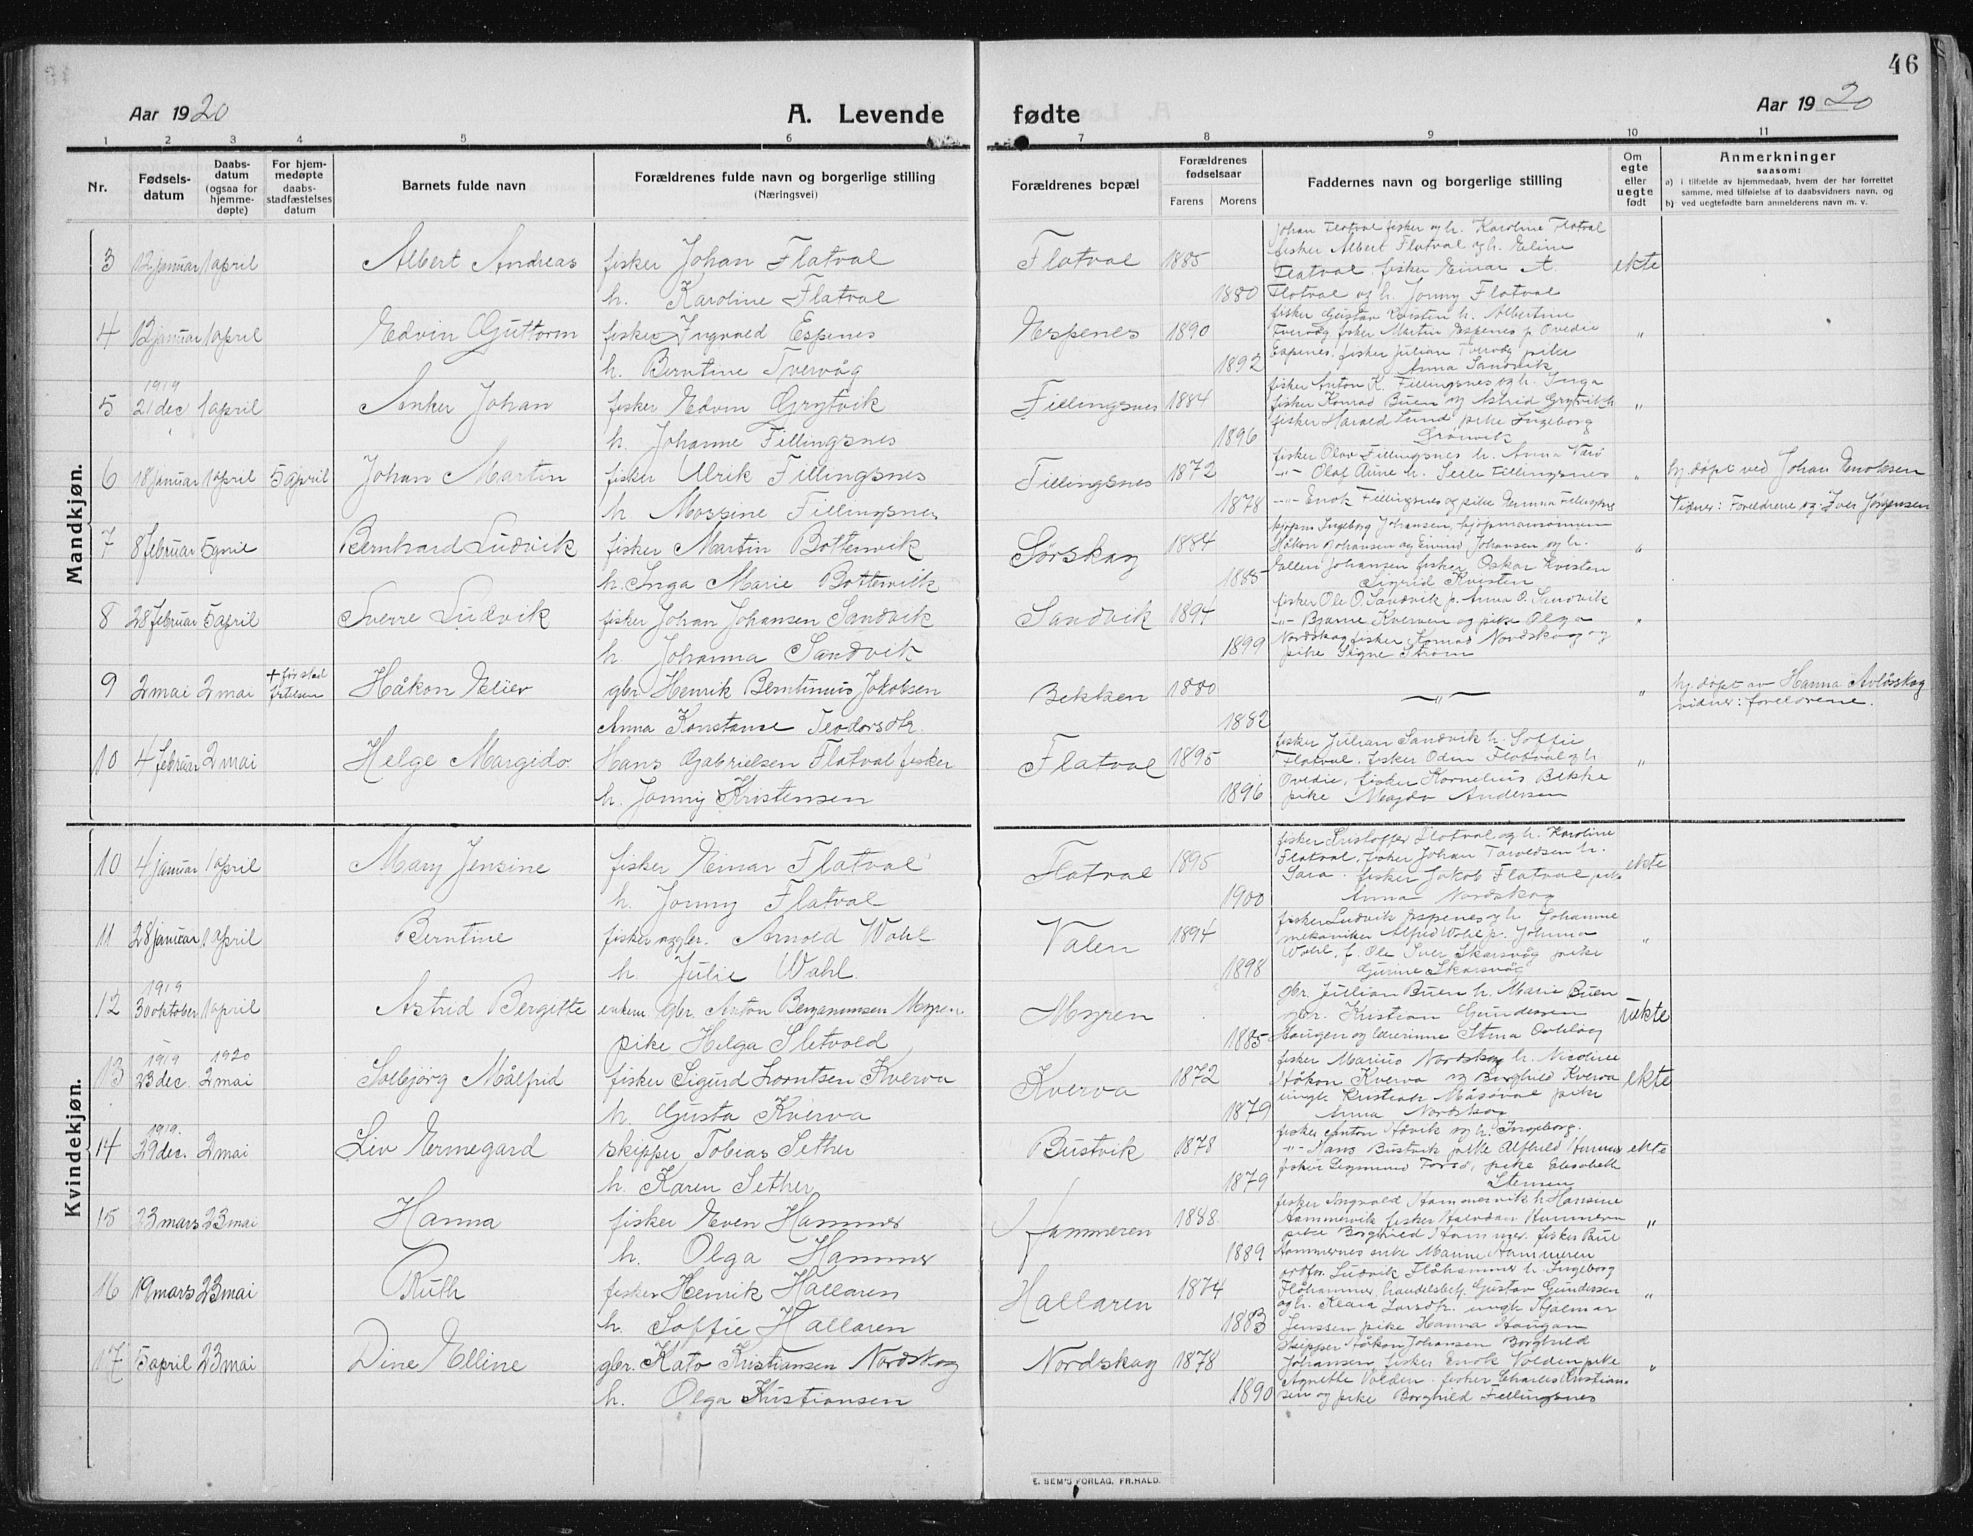 46
Aar 1920
A. Levende
fødte
Aar 1920
1 2 3 4 5 6 7 8 9 10 11
Nr.
Fødsels-datum
Daabs-datum (ogsaa for hjemme-døpte)
For hjem-medøpte daabs-stadfæstelses datum
Barnets fulde navn
Forældrenes fulde navn og borgerlige stilling
(Næringsvei)
Forældrenes bopæl
Forældrenes fødselsaar
Farens Morens
Faddernes navn og borgerlige stilling
Om egte eller uegte født
Anmerkninger
saasom:
a) i tilfælde av hjemmedaab, hvem der har forrettet samme, med tilføielse af to daabsvidners navn, og
b) ved uegtefødte barn anmelderens navn m. v.
Mandkjøn.
3 12 januar 1 april Albert Andreas fisker Johan Flatval Flatval 1885 ekte
h. Karoline Flatval 1880
Johan Flatval fisker og h. Karoline Flatval
fisker Albert Flatval og h. Eline
Flatval, fisker Einar A.
Flatval og h. Jonny Flatval
4 12 januar 1 april Edvin Guttorm fisker Ingvald Espenes Espenes 1890 "
h. Berntine Tvervåg 1892
fisker Gustav Kvisten h. Albertine
Tvervåg fisker Martin Espenes p. Ovedie
Espenes, fisker Julian Tvervåg pike
Anna Sandvik
1919
5 21 dec 1 april Anker Johan fisker Edvin Grytvik Fillingsnes 1884 "
h. Johanne Fillingsnes 1896
fisker Anton K. Fillingsnes og h. Inga
fisker Konrad Buen og Astrid Grytvik
fisker Harald Lund pike Ingeborg
Grønvik
6 18 januar 1 april 5 april Johan Martin fisker Ulrik Fillingsnes Fillingsnes 1872 "
h. Mossine Fillingsnes 1878
fisker Olav Fillingsnes h. Anna
-"- Olaf Aune h. Fillingsnes
-"- Enok Fillingsnes og pike Emma Fillingsnes
hj. døpt ved Johan Enoksen
Vidner: Foreldrene og Iver Jørgensen
7 8 februar 5 april Bernhard Ludvik fisker Martin Bottenvik Sørskag 1884 "
h. Inga Marie Bottenvik 1885
Ingeborg Johansen, kjøpmannsønnen
Håkon Johansen og Eivind Johansen, og h.
Johansen fisker Oskar Kvisten
Sigrid Kvisten
8 28 februar 5 april Sverre Ludvik fisker Johan Johansen Sandvik Sandvik 1894 "
h. Johanna Sandvik 1899
fisker Ole O. Sandvik p. Anna O. Sandvik
-"- Bjarne Kverven og pike Olga
Nordskag fisker Konrad Nordskag og
pike Signe Strøm
9 2 mai 2 mai + før stadfestelsen Håkon Eliev gbr. Henrik Berntinus Jakobsen Bekken 1880 -"- "
Anna Konstanse Teodorsdtr. 1882
hj. døpt av Hanna Avløsskag
vidner: foreldrene.
10 4 februar 2 mai Helge Margido Hans Gabrielsen Flatval fisker Flatval 1895 "
h. Jonny Kristensen 1896
fisker Julian Sandvik h. Soffie
Flatval, fisker Oden Flatval og h
Ovedie, fisker Kornelius Bekke
pike Magda Andersen
Kvindekjøn.
10 4 januar 1 april Mary Jensine fisker Einar Flatval Flatval 1895 ekte
h. Jonny Flatval 1900
fisker Kristoffer Flatval og h. Karoline
Flatval, fisker Johan Tarvldsen h.
Sara. fisker Jakob Flatval pike
Anna Nordskag
11 28 januar 1 april Berntine fisker og gbr. Arnold Wahl Valen 1894 "
h. Julie Wahl. 1898
fisker Ludvik Espenes og h. Johanne
mekaniker Alfred Wahl p. Johanna
Wahl, f. Ole Iver Skarsvåg pike
Gurine Skarsvåg
1919
12 30 oktober 1 april Astrid Bergitte enkem. gbr. Anton Benjaminsen Myren Myren uekte
pike Helga Sletvold 1885
gbr. Jullian Buen h. Marie Buen
gbr. Kristian Gundersen
Haugen og lærerinne Stina
1919 1920
13 23 dec. 2 mai Solbjörg Målfrid fisker Sigurd Lorntsen Kverva Kverva 1872 ekte
h. Gusta Kverva 1879
fisker Marius Nordskag h. Nicoline
Håkon Kverva og Borghild Kverva
ungk. Kristian Måsøval pike
Anna Nordskag
1919.
14 29 dec. 2 mai Liv Ermegard skipper Tobias Sether Bustvik 1878 ekte
h. Karen Sether 1879
fisker Anton Håvik og h. Ingeborg.
-"- Hans Bustvik pike Alfhild Hammer
fisker Sigmund Forsø, pike Elisabeth
Stensen
15 23 mars 23 mai Hanna fisker Even Hammer Hammeren 1888. "
h. Olga Hammer 1889
fisker Ingvald Hammervik h. Hansine
Hammervik fisker Halvdan Hammeren
pike Borghild Hammer. fisker Paul
Hammernes enke Manne Hammeren
16 19 mars 23 mai Ruth fisker Henrik Hallaren Hallaren 1874 "
h. Soffie Hallaren 1883
ordfør. Ludvik Flåhammer h. Ingeborg
Flåhammer, handelsbetj. Gustav Gundersen
og h. Klara Larsdtr. ungk. Hjalmar
Jenssen pike Hanna Haugan
17 5 april 23 mai Dine Elline gbr. Kato Kristiansen Nordskag Nordskag 1878 "
h. Olga Kristiansen 1890
Skipper Håkon Johansen Borghild
Johansen, fisker Enok Volden pike
Agnette Volden. fisker Charles Kristian-
sen og pike Borghild Fillingsnes
E. SEM'S FORLAG, FR.HALD.